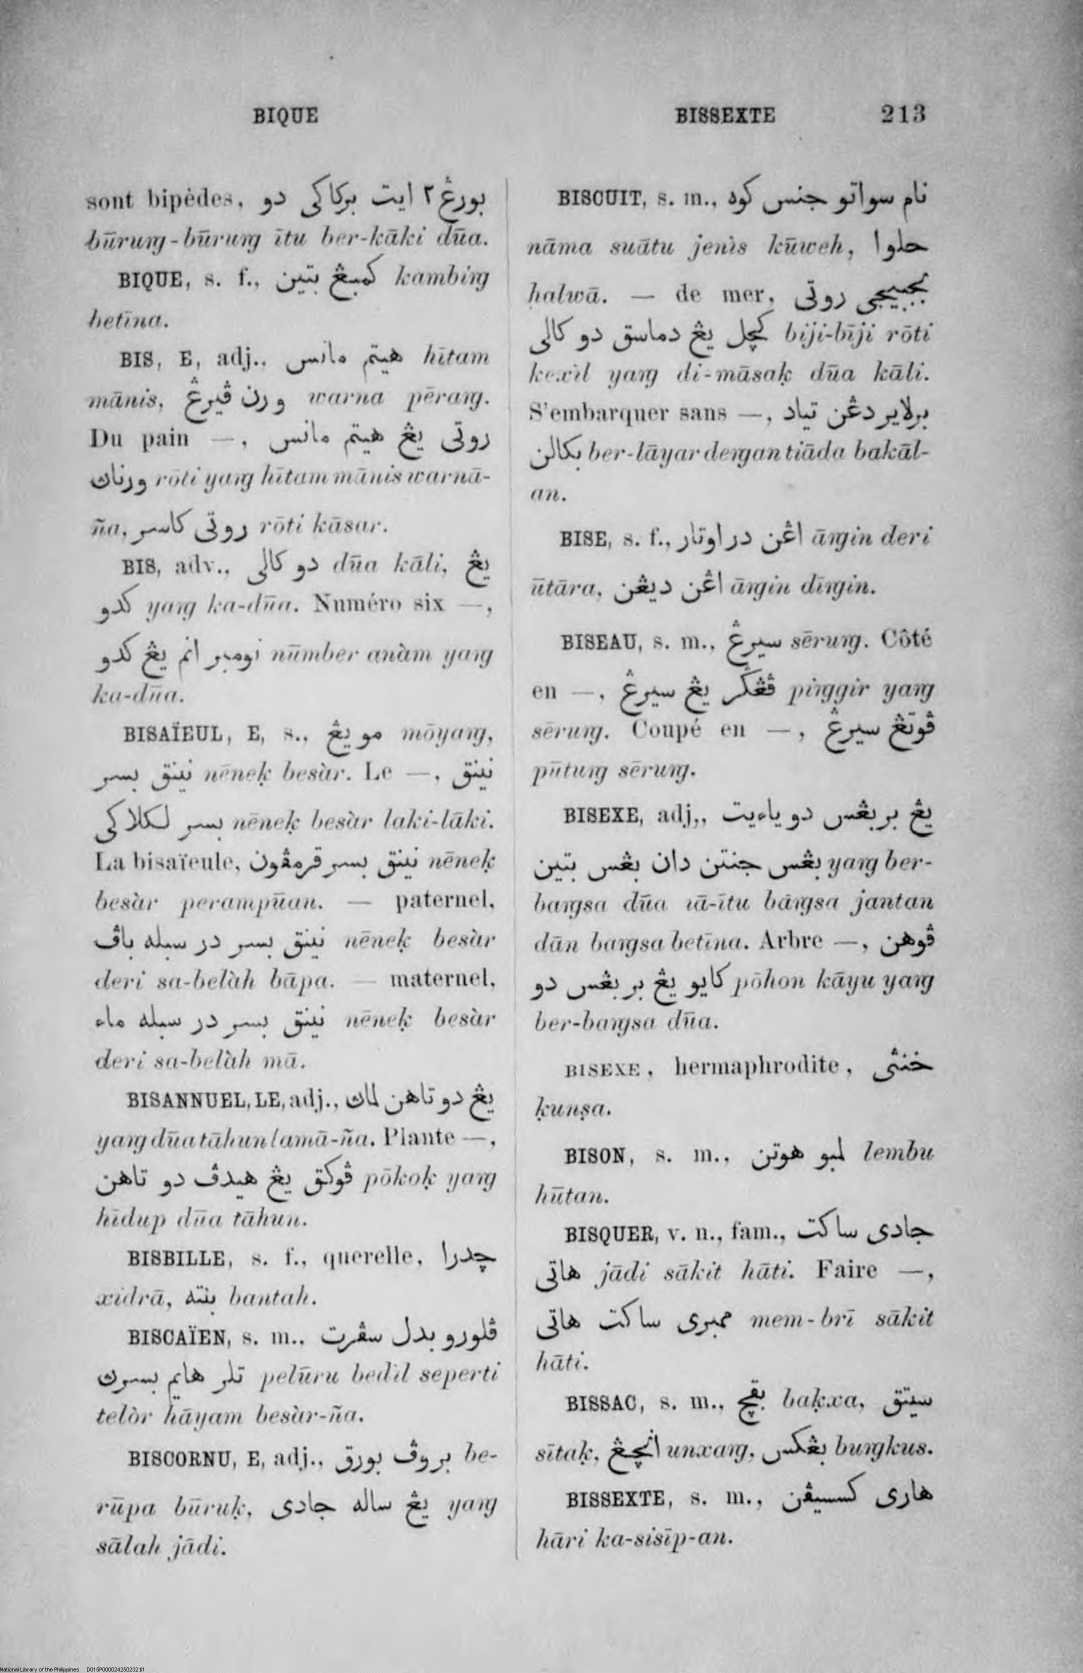 BIQUE
BISSEXTE 213
sont bipèdes, بورڠ٢ ايت برکاکی دو
būrung-būrung ītu ber-kāki dūa.
BIQUE, s. f., کمبڠ بتين kambing
betīna.
BIS, E, adj., هيتم مانس hītam
mānis, ورن ڤيرڠ warna pērang.
Du pain —, روتی يڠ هيتم مانس
ورناڽ rōti yang hītam mānis warnā-
ña, روتی کاسر rōti kāsar.
BIS, adv., دو کالی dūa kāli, يڠ
کدو yang ka-dūa. Numéro six —,
نومبر انم يڠ کدو nūmber anàm yang
ka-dūa.
BISAÏEUL, E, s., مويڠ mōyang,
نينق بسر nēneḳ besàr. Le —, نينق
بسر لکلاکی nēneḳ besàr laki-lāki.
La bisaïeule, نينق بسر فرمڤون nēneḳ
besàr perampūan. — paternel,
نينق بسر در سبله باڤ nēneḳ besàr
deri sa-belàh bāpa. — maternel,
نينق بسر در سبله ماء nēneḳ besàr
deri sa-belàh mā.
BISANNUEL, LE, adj., يڠ دو تاهن لماڽ
yang dūa tāhun lamā-ña. Plante —,
ڤوکق يڠ هيدڤ دو تاهن pōkoḳ yang
hīdup dūa tāhun.
BISBILLE, s. f., querelle, چدرا
xidrā, بنته bantah.
BISCAÏEN, s. m., ڤلورو بدل سڤرت
تلر هايم بسرڽ pelūru bedìl seperti
telòr hāyam besàr-ña.
BISCORNU, E, adj., بروڤ بورق be-
rūpa būruḳ, يڠ ساله جادی yang
sālah jādi.
BISCUIT, s. m., نام سواتو جنس کوه
nāma suātu jenìs kūweh, حلوا
ḥalwā. — de mer, بجيبيجی روتی
کچل يڠ دماسق دو کالی biji-bīji rōti
kexìl yang di-māsaḳ dūa kāli.
S'embarquer sans —, برلاير دڠن تياد
بکالن ber-lāyar dengan tiāda bakāl-
an.
BISE, s. f., اڠن در اوتار āngin deri
ūtāra, اڠن ديڠن āngin dīngin.
BISEAU, s. m., سيرڠ sērung. Côté
en —, ڤڠݢر يڠ سيرڠ pinggir yang
sērung. Coupé en —, ڤوتڠ سيرڠ
pūtung sērung.
BISEXE, adj., يڠ بربڠس دو ياءيت
بڠس جنتن دان بڠس بتين yang ber-
bangsa dūa ıā-ītu bāngsa jantan
dān bangsa betīna. Arbre —, ڤوهن
کايو يڠ بربڠس دو pōhon kāyu yang
ber-bangsa dūa.
BISEXE, hermaphrodite, خنثی
ḳunṣa.
BISON, s. m., لمبو هوتن lembu
hūtan.
BISQUER, v. n., fam., جادی ساکت
هاتی jādi sākit hāti. Faire —,
ممبری ساکت هاتی mem-brī sākit
hāti.
BISSAC, s. m., بقچ baḳxa, سيتق
sītaḳ, انچڠ unxang, بڠکس bungkus.
BISSEXTE, s. m., هاری کسسيڤن
hāri ka-sisīp-an.
National Library of the Philippines